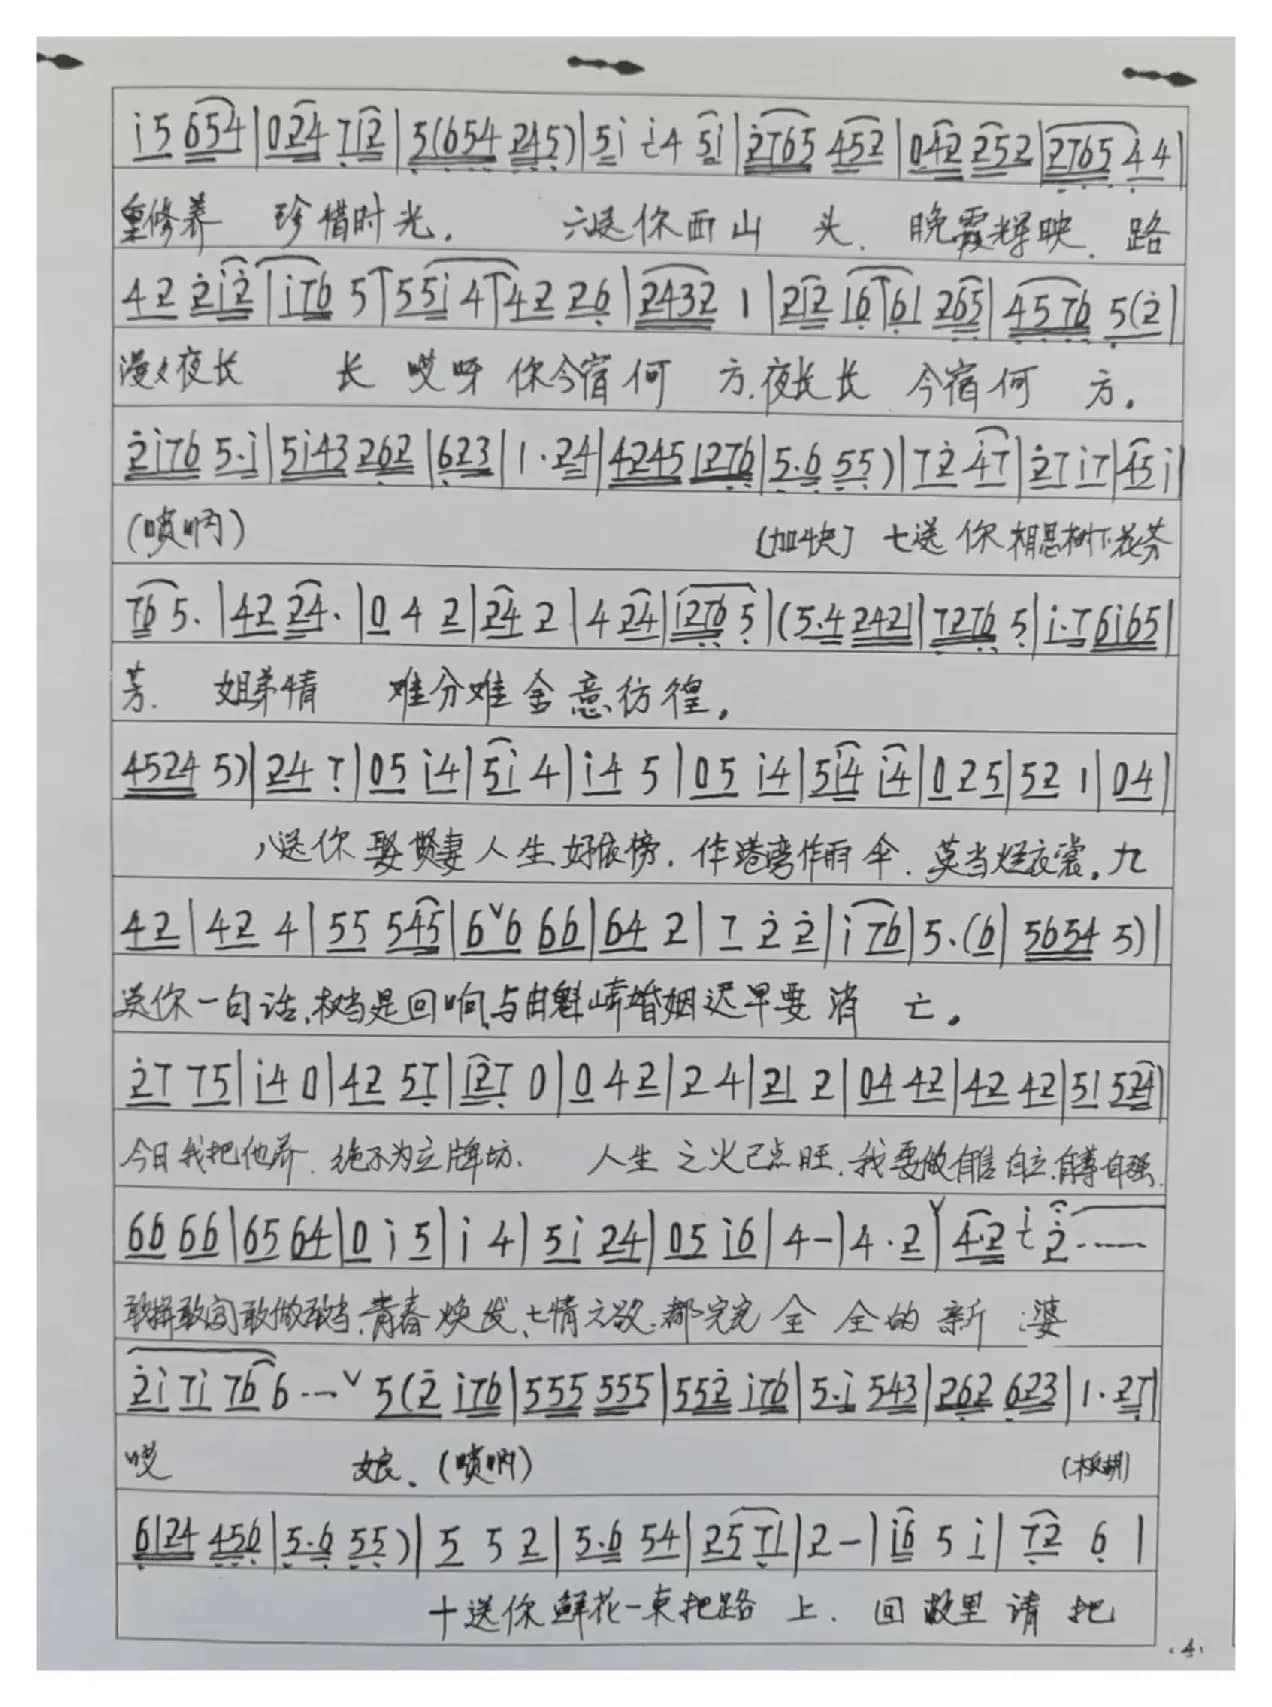 i 5 654 | 0 24 7 i2 | 5(654 245) | 5i i4 5i | 2765 452 | 042 252 | 2765 44 |
重修养 珍惜时光. 六送你西山 头. 晚霞辉映. 路
42 2i2 | i76 5 | 55i 4 | 42 26 | 2432 1 | 2i2 16 | 61 265 | 4576 5(2 |
漫々夜长 长 哎呀 你今宿何 方.夜长长 今宿何 方.
2i76 5·i | 5i43 262 | 623 | 1·24 | 4245 1276 | 5·6 55) | 72 47 | 27 i7 | 45 i |
(唢呐) [加快] 七送你相思树下花芬
76 5· | 42 24· | 0 4 2 | 24 2 · | 4 24 | i276 5 | (5·4 2421 | 7276 5 | i·7 6i65 |
芳. 姐弟情 难分难舍意彷徨.
4524 5) | 24 7 | 05 i4 | 5i 4 | i4 5 | 05 i4 | 5i4 i4 | 0 25 | 52 1 | 04 |
八送你娶贤妻人生好依傍. 作港湾作雨伞. 莫当烂衣裳. 九
42 | 42 4 | 55 545 | 6ˇ6 66 | 64 2 | 7 2 2 | i 76 | 5·(6 | 5654 5) |
送你一句话.权当是回响.与由魁崎婚姻迟早要消 亡.
27 75 | i4 0 | 42 57 | i27 0 | 0 42 | 24 | 21 2 | 04 42 | 42 42 | 51 524 |
今日我把他弃. 绝不为立牌坊. 人生之火已点旺.我要做自信自立.自尊自强.
66 66 | 65 64 | 0 i 5 | i 4 | 5i 24 | 05 i6 | 4 – | 4·2ˇ | 4·2 i 2······
敢拼敢闯敢做敢当.青春焕发、七情六欲.都完完全 全的新 婆
2i 7i 76 6 ···ˇ 5(2 i76 | 555 555 | 552 i76 | 5·i 543 | 262 623 | 1·27 |
哎 娘. (唢呐) (板胡)
6124 456 | 5·6 55) | 5 5 2 | 5·6 54 | 25 71 | 2 – | i6 5 i | 72 6 |
十送你鲜花一束把路 上. 回故里请把
·4·